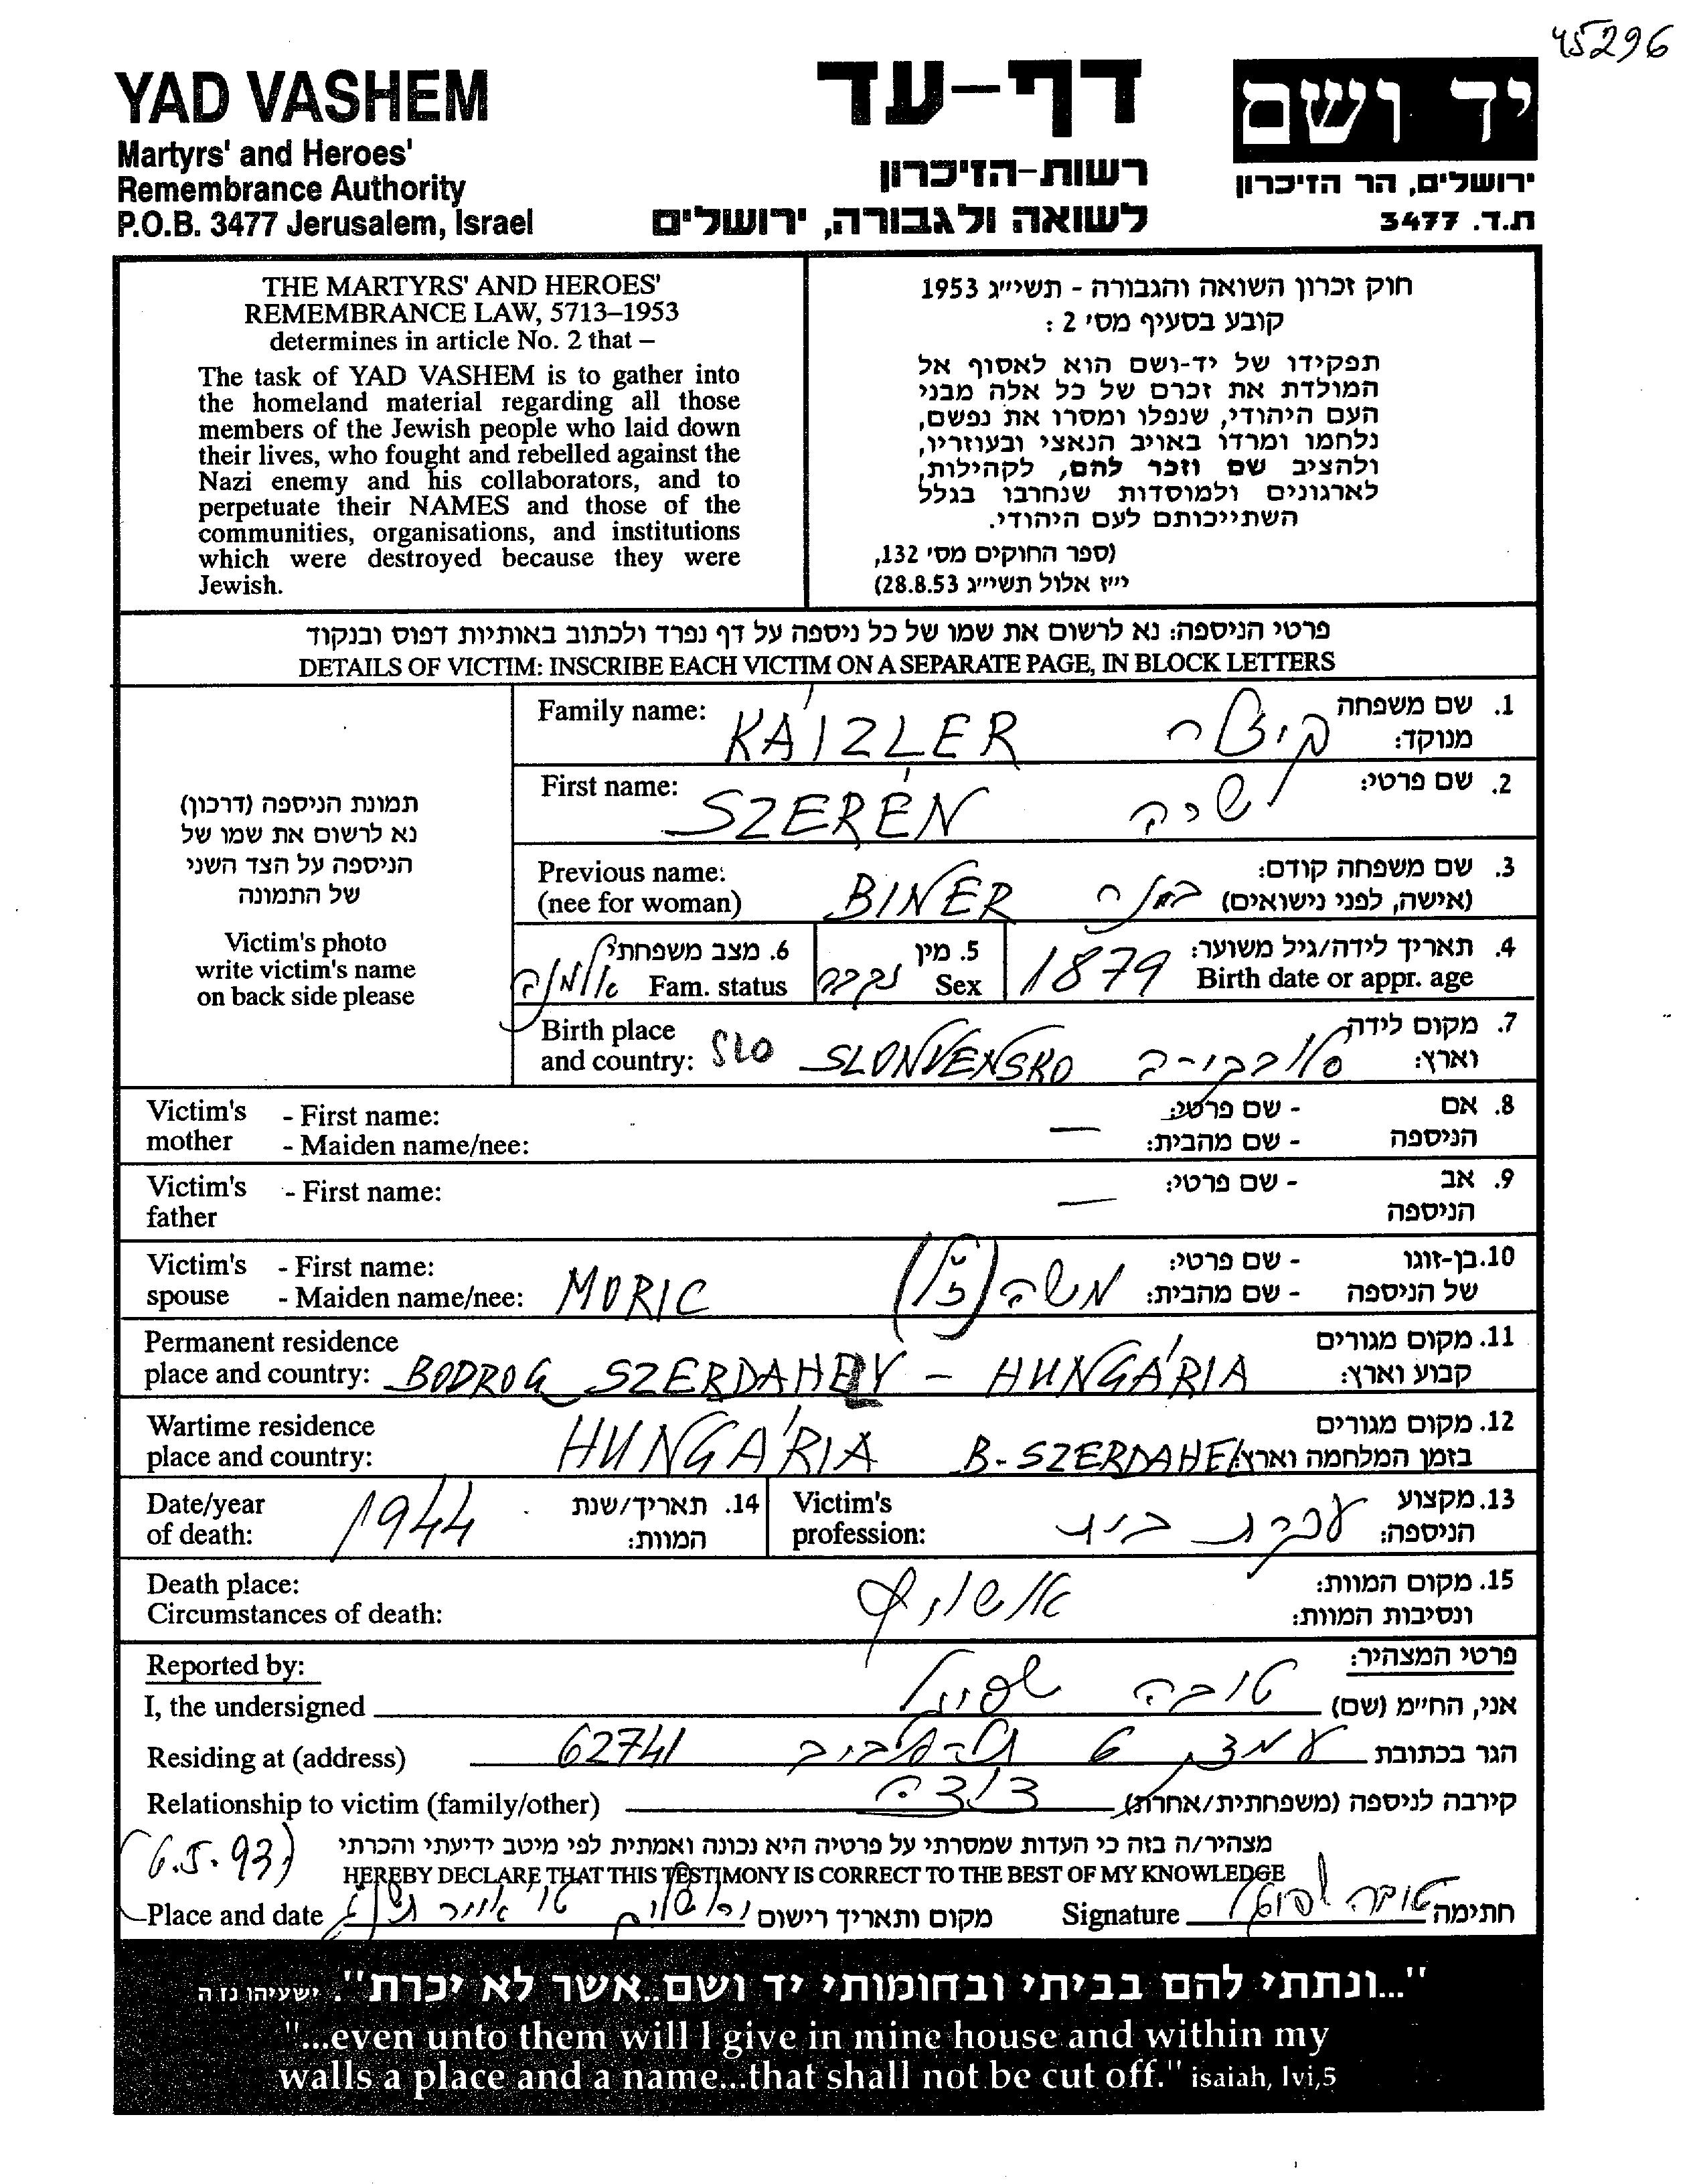 45296
YAD VASHEM
Martyrs' and Heroes'
Remembrance Authority
P.O.B. 3477 Jerusalem, Israel
דף-עד
רשות-הזיכרון
לשואה ולגבורה, ירושלים
יד ושם
ירושלים, הר הזיכרון
ת.ד. 3477
THE MARTYRS' AND HEROES'
REMEMBRANCE LAW, 5713–1953
determines in article No. 2 that –
The task of YAD VASHEM is to gather into
the homeland material regarding all those
members of the Jewish people who laid down
their lives, who fought and rebelled against the
Nazi enemy and his collaborators, and to
perpetuate their NAMES and those of the
communities, organisations, and institutions
which were destroyed because they were
Jewish.
חוק זכרון השואה והגבורה - תשי״ג 1953
קובע בסעיף מס׳ 2 :
תפקידו של יד-ושם הוא לאסוף אל
המולדת את זכרם של כל אלה מבני
העם היהודי, שנפלו ומסרו את נפשם,
נלחמו ומרדו באויב הנאצי ובעוזריו,
ולהציב שם וזכר להם, לקהילות,
לארגונים ולמוסדות שנחרבו בגלל
השתייכותם לעם היהודי.
(ספר החוקים מס׳ 132,
י״ז אלול תשי״ג 28.8.53)
פרטי הניספה: נא לרשום את שמו של כל ניספה על דף נפרד ולכתוב באותיות דפוס ובנקוד
DETAILS OF VICTIM: INSCRIBE EACH VICTIM ON A SEPARATE PAGE, IN BLOCK LETTERS
תמונת הניספה (דרכון)
נא לרשום את שמו של
הניספה על הצד השני
של התמונה
Victim's photo
write victim's name
on back side please
Family name: KÁIZLER קיזלר 1. שם משפחה
מנוקד:
First name: SZERÉN שרה 2. שם פרטי:
Previous name: 3. שם משפחה קודם:
(nee for woman) BINER (אישה, לפני נישואים)
6. מצב משפחתי 5. מין 4. תאריך לידה/גיל משוער:
אלמנה Fam. status נקבה Sex 1879 Birth date or appr. age
Birth place 7. מקום לידה
and country: SLO SLONVENSKO סלובקיה וארץ:
Victim's - First name: - שם פרטי: 8. אם
mother - Maiden name/nee: — - שם מהבית: הניספה
Victim's - First name: - שם פרטי: 9. אב
father — הניספה
Victim's - First name: - שם פרטי: 10. בן-זוגו
spouse - Maiden name/nee: MORIC משה (ז״ל) - שם מהבית: של הניספה
Permanent residence 11. מקום מגורים
place and country: BODROG SZERDAHELY - HUNGÁRIA קבוע וארץ:
Wartime residence 12. מקום מגורים
place and country: HUNGÁRIA B-SZERDAHEL בזמן המלחמה וארץ:
Date/year 14. תאריך/שנת Victim's 13. מקצוע
of death: 1944 המוות: profession: עקרת בית הניספה:
Death place: 15. מקום המוות:
Circumstances of death: אשויץ ונסיבות המוות:
Reported by: פרטי המצהיר:
I, the undersigned טובה אני, החי״מ (שם)
Residing at (address) 62741 תל-אביב 6 הגר בכתובת
Relationship to victim (family/other) קירבה לניספה (משפחתית/אחרת)
(6.5.93) מצהיר/ה בזה כי העדות שמסרתי על פרטיה היא נכונה ואמתית לפי מיטב ידיעתי והכרתי
HEREBY DECLARE THAT THIS TESTIMONY IS CORRECT TO THE BEST OF MY KNOWLEDGE
Place and date ירושלים ט״ו אייר תשנ״ג מקום ותאריך רישום Signature טובה חתימה
"...ונתתי להם בביתי ובחומותי יד ושם..אשר לא יכרת". ישעיהו נו ה
"...even unto them will I give in mine house and within my
walls a place and a name...that shall not be cut off." isaiah, lvi,5